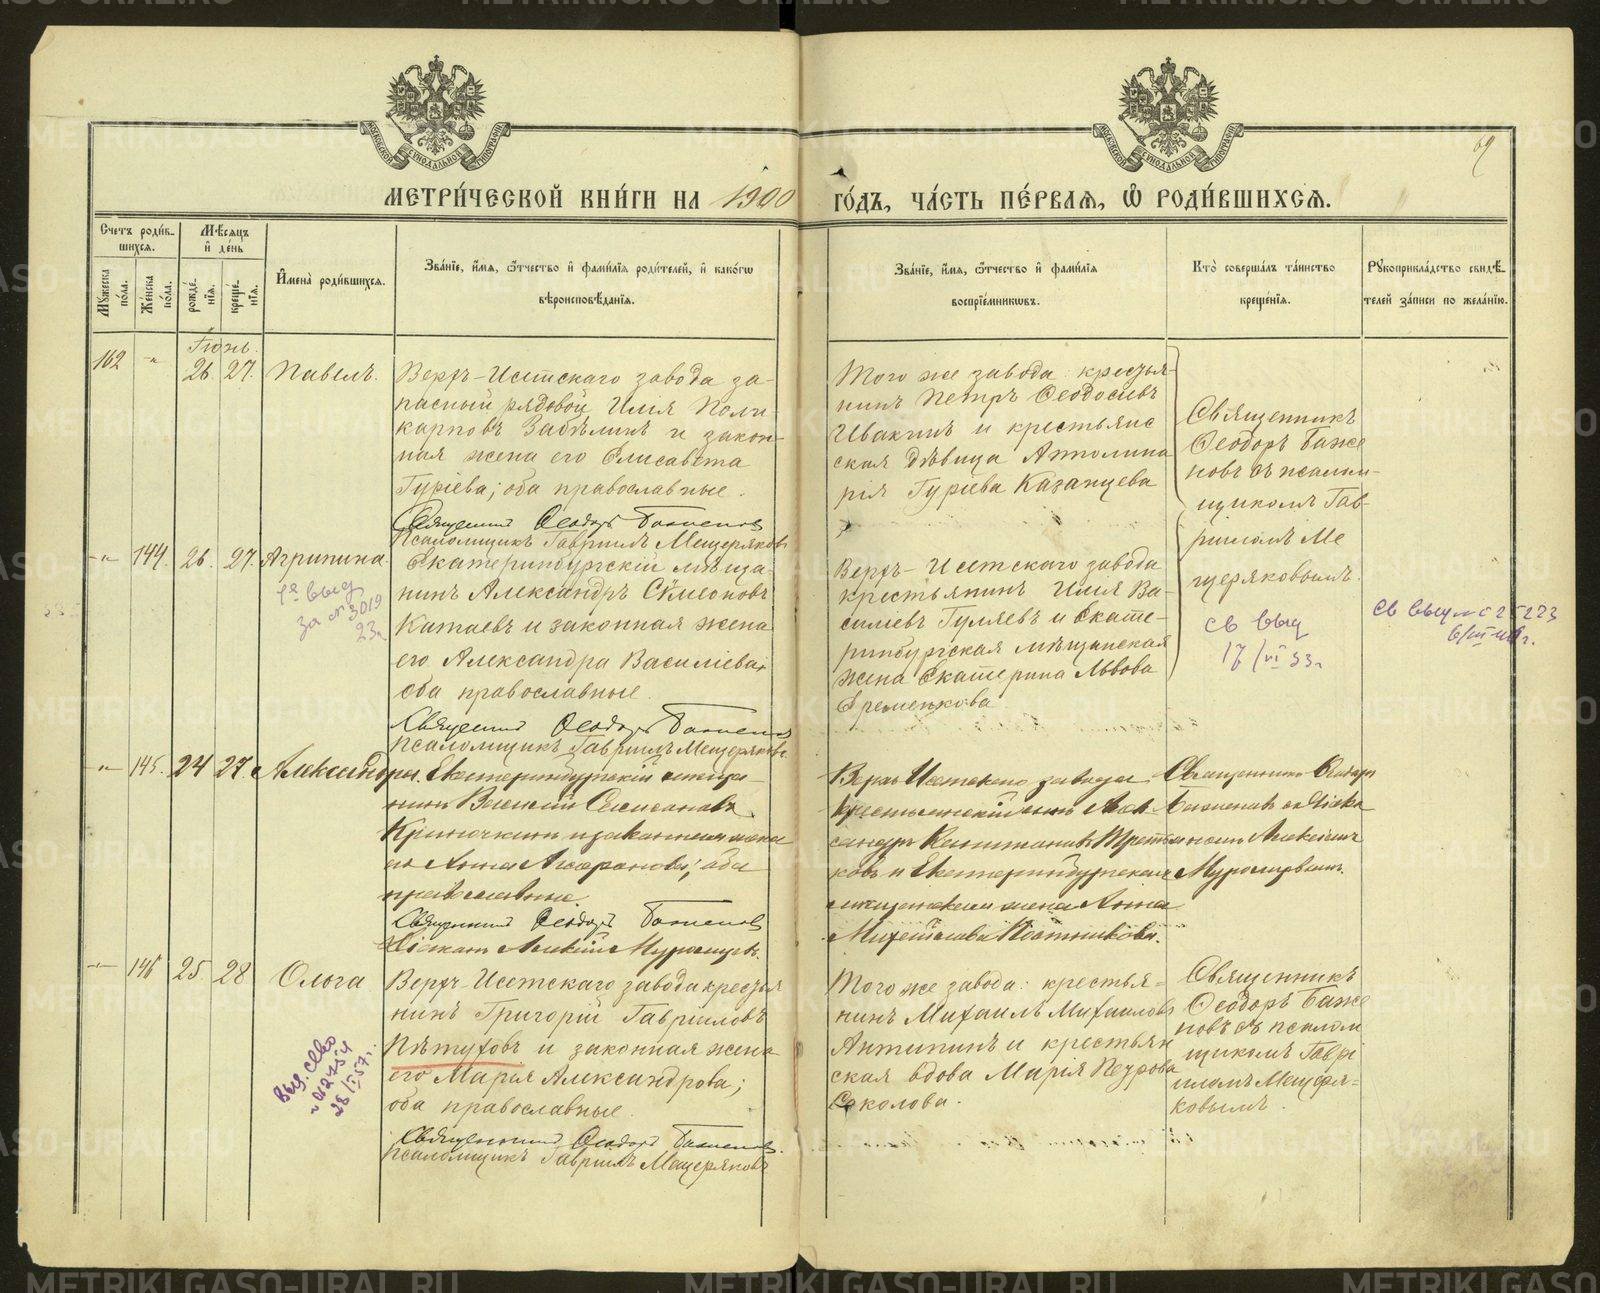 МЕТРИ́ЧЕСКОЙ КНИ́ГИ НА 1900 ГО́ДЪ, ЧА́СТЬ ПЕ́РВАЯ, Ѡ РОДИ́ВШИХСЯ.
69
Счетъ роди́в-
шихся.
Мѣсяцъ
и де́нь
Мꙋжеска по́ла.
Же́нска по́ла.
рожде́нїя.
креще́нїя.
Имена̀ роди́вшихся.
Зва́нїе, и́мя, ѻ҆́тчество и фами́лїя роди́телей, и како́гѡ
вѣроисповѣ́данїя.
Зва́нїе, и́мя, ѻ҆́тчество и фами́лїя
воспрїе́мникѡвъ.
Кто̀ соверша́лъ та́инство
креще́нїя.
Рꙋкоприкла́дство свидѣ́-
телей за́писи по жела́нїю.
Іюнь
162 -"- 26. 27. Павелъ.
Верхъ-Исетскаго завода за-
пасный рядовой Илія Поли-
карповъ Забѣлинъ и закон-
ная жена его Елисавета
Гуріева; оба православные.
Священникъ Ѳеодоръ Баженовъ
Псаломщикъ Гавріилъ Мещеряковъ
Того же завода: крестья-
нинъ Петръ Ѳеодосіевъ
Ивакинъ и крестьянс
ская дѣвица Апполина
рія Гуріева Казанцева
Священникъ
Ѳеодоръ Баже
новъ съ псалом-
щикомъ Гав-
ріиломъ Ме
щеряковымъ.
-"- 144. 26. 27. Агрипина
Екатеринбургскій мѣща-
нинъ Александръ Сѵмеоновъ
Катаевъ и законная жена
его Александра Василіева,
оба православные.
Священникъ Ѳеодоръ Баженовъ
Псаломщикъ Гавріилъ Мещеряковъ.
Верхъ-Исетскаго завода
крестьянинъ Илія Ва-
силіевъ Гуляевъ и Екате-
ринбургская мѣщанская
жена Екатерина Львова
Еременкова
за № 3019
23г.
св выд
17/VI 33г.
-"- 145. 24 27. Александра.
Екатеринбургскій мѣща-
нинъ Василій
и законная жена
его Анна ; оба
православные.
Священникъ Ѳеодоръ Баженовъ
Діаконъ Алексій
Верхъ Исетскаго завода
крестьянскій сынъ Алек-
сандръ Третья
ковъ и Екатеринбургская
мѣщанская жена Анна
Священникъ Ѳеодоръ
Баженовъ съ діако
номъ Алексіемъ
-"- 146 25. 28 Ольга
Верхъ-Исетскаго завода крестья
нинъ Григорій Гавріиловъ
Пѣтуховъ и законная жена
его Марія Александрова;
оба православные.
Священникъ Ѳеодоръ Баженовъ.
Псаломщикъ Гавріилъ Мещеряковъ
Того же завода: крестья-
нинъ Михаилъ Михаиловъ
Антипинъ и крестьян
ская вдова Марія Петрова
Соколова.
Священникъ
Ѳеодоръ Баже
новъ съ псалом
щикомъ Гаврі
иломъ Мещеря-
ковымъ.
METRIKI.GASO-URAL.RU